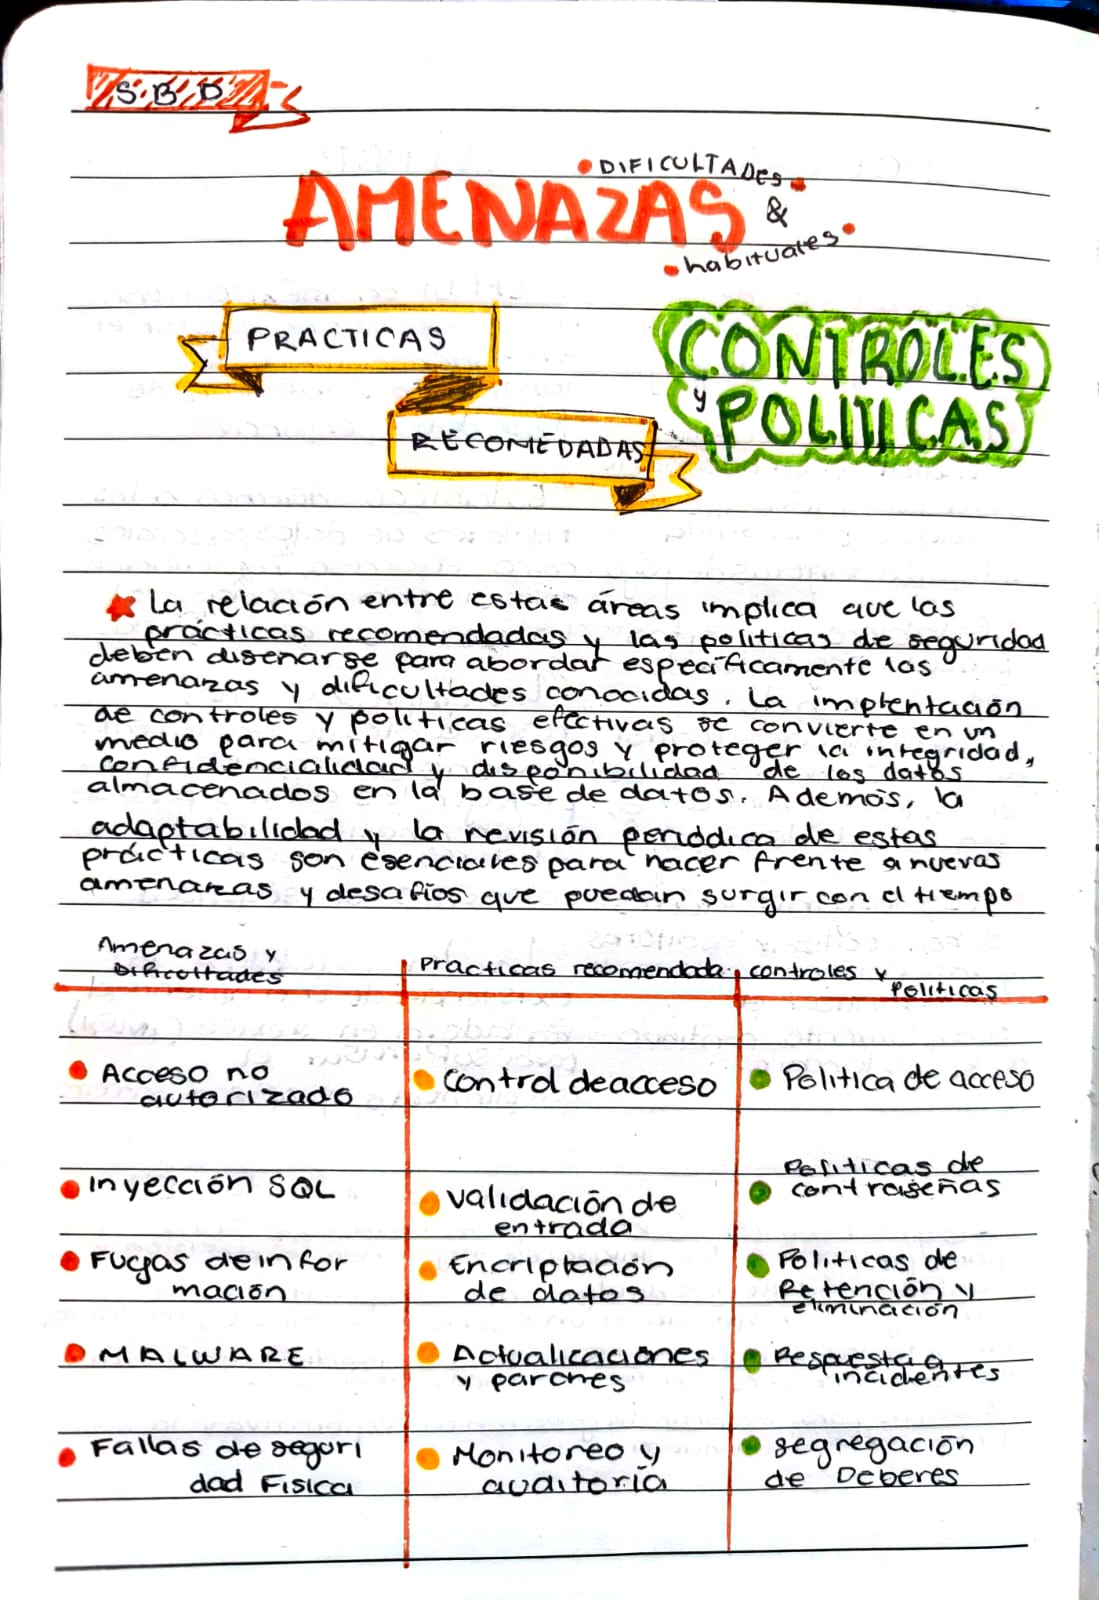 S.B.D
• DIFICULTADES •
AMENAZAS &
• habituales •
PRACTICAS
RECOMEDADAS
CONTROLES
y
POLITICAS
★ La relación entre estas áreas implica que las
prácticas recomendadas y las politicas de seguridad
deben diseñarse para abordar específicamente las
amenazas y dificultades conocidas. La implentación
de controles y politicas efectivas se convierte en un
medio para mitigar riesgos y proteger la integridad,
confidencialidad y disponibilidad de los datos
almacenados en la base de datos. Además, la
adaptabilidad y la revisión periódica de estas
prácticas son esenciales para hacer frente a nuevas
amenazas y desafíos que puedan surgir con el tiempo
Amenazas y
Dificultades
Practicas recomendada
controles y
Politicas
• Acceso no
autorizado
• Control de acceso
• Politica de acceso
• Inyección SQL
• Validación de
entrada
Politicas de
• contraseñas
• Fugas de infor
mación
• Encriptación
de datos
• Politicas de
Retención y
eliminación
• MALWARE
• Actualizaciones
y parches
• Respuesta a
incidentes
• Fallas de seguri
dad Fisica
• Monitoreo y
auditoría
• segregación
de Deberes